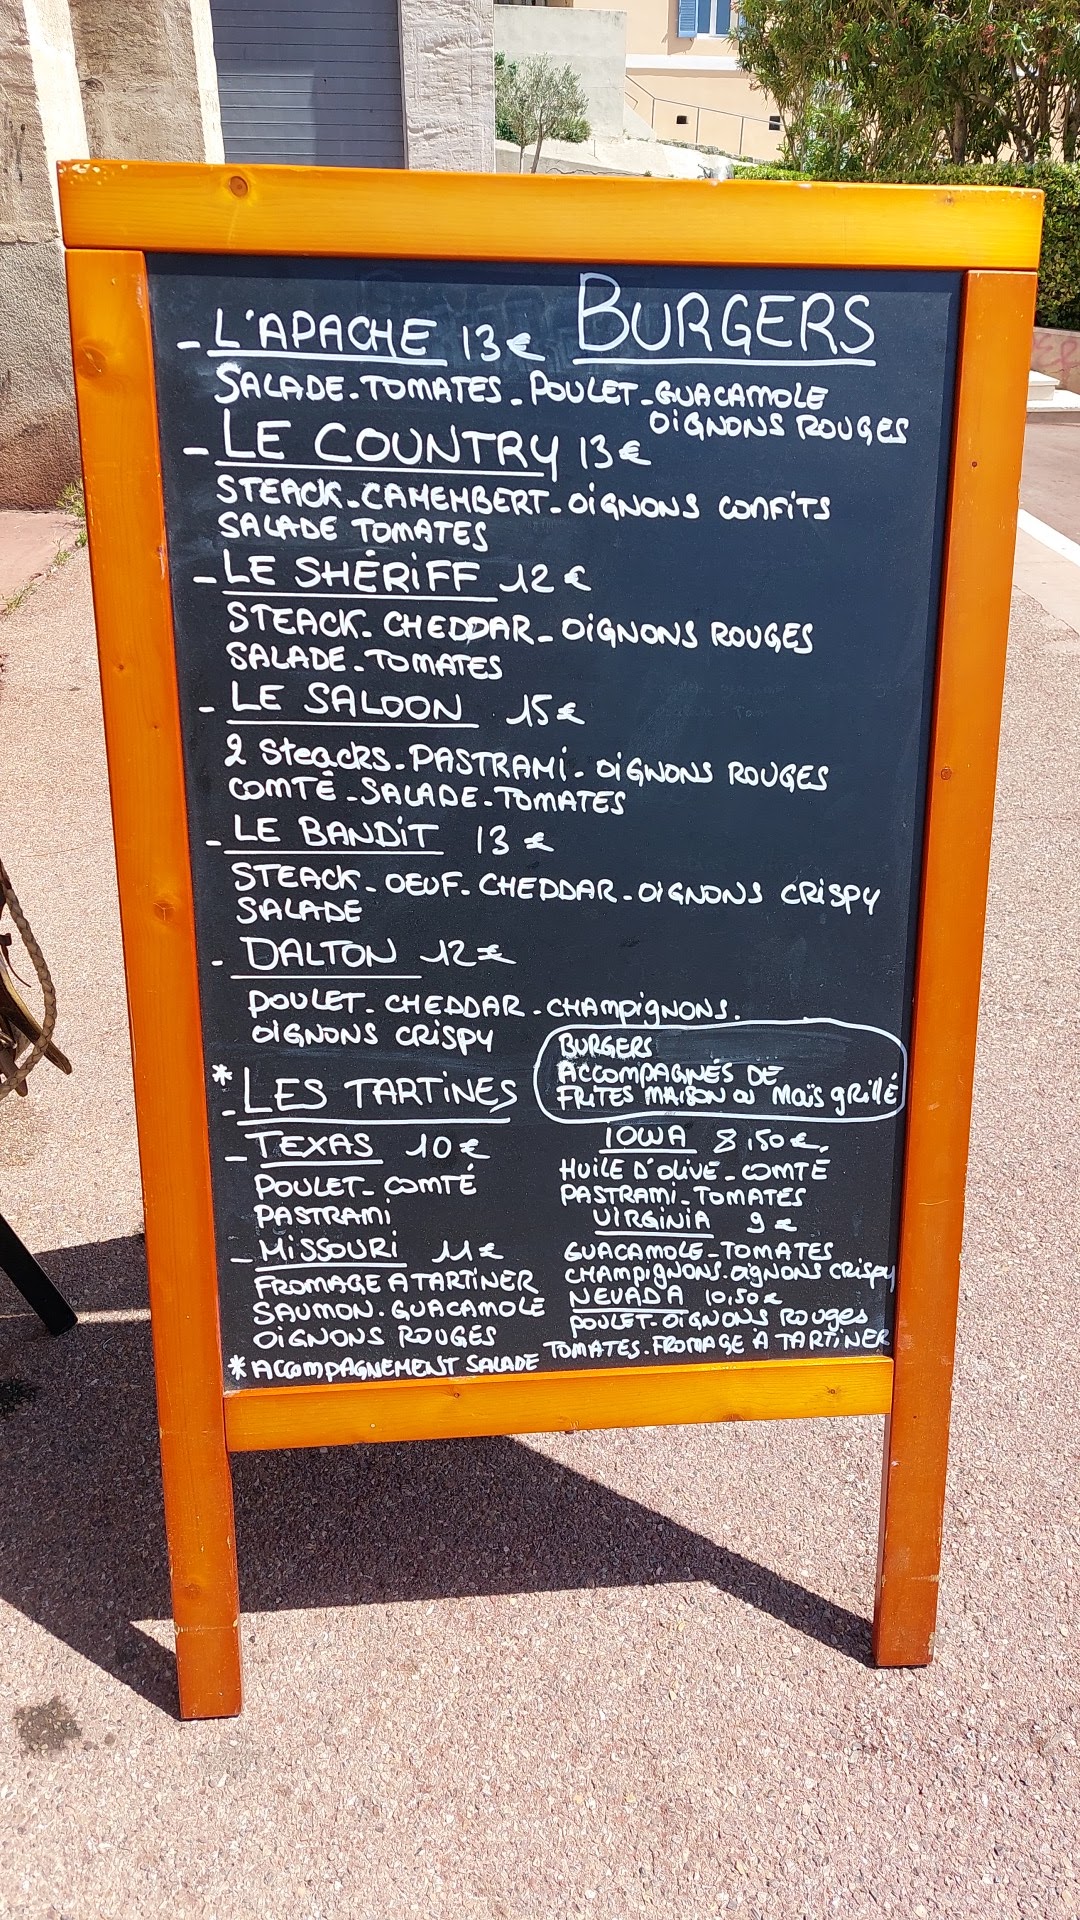 BURGERS
- L'APACHE 13€
SALADE - TOMATES - POULET - GUACAMOLE
OIGNONS ROUGES
- LE COUNTRY 13€
STEACK - CAMEMBERT - OIGNONS CONFITS
SALADE TOMATES
- LE SHÉRIFF 12€
STEACK - CHEDDAR - OIGNONS ROUGES
SALADE - TOMATES
- LE SALOON 15€
2 Steacks - PASTRAMI - OIGNONS ROUGES
COMTÉ - SALADE - TOMATES
- LE BANDIT 13€
STEACK - OEUF - CHEDDAR - OIGNONS CRISPY
SALADE
- DALTON 12€
POULET - CHEDDAR - CHAMPIGNONS.
OIGNONS CRISPY
BURGERS
ACCOMPAGNÉS DE
FRITES MAISON OU MAÏS GRILLÉ
* - LES TARTINES
- TEXAS 10€
POULET - COMTÉ
PASTRAMI
- MISSOURI 11€
FROMAGE A TARTINER
SAUMON - GUACAMOLE
OIGNONS ROUGES
* ACCOMPAGNEMENT SALADE
IOWA 8,50€
HUILE D'OLIVE - COMTÉ
PASTRAMI - TOMATES
VIRGINIA 9€
GUACAMOLE - TOMATES
CHAMPIGNONS - OIGNONS CRISPY
NEVADA 10,50€
POULET - OIGNONS ROUGES
TOMATES - FROMAGE À TARTINER